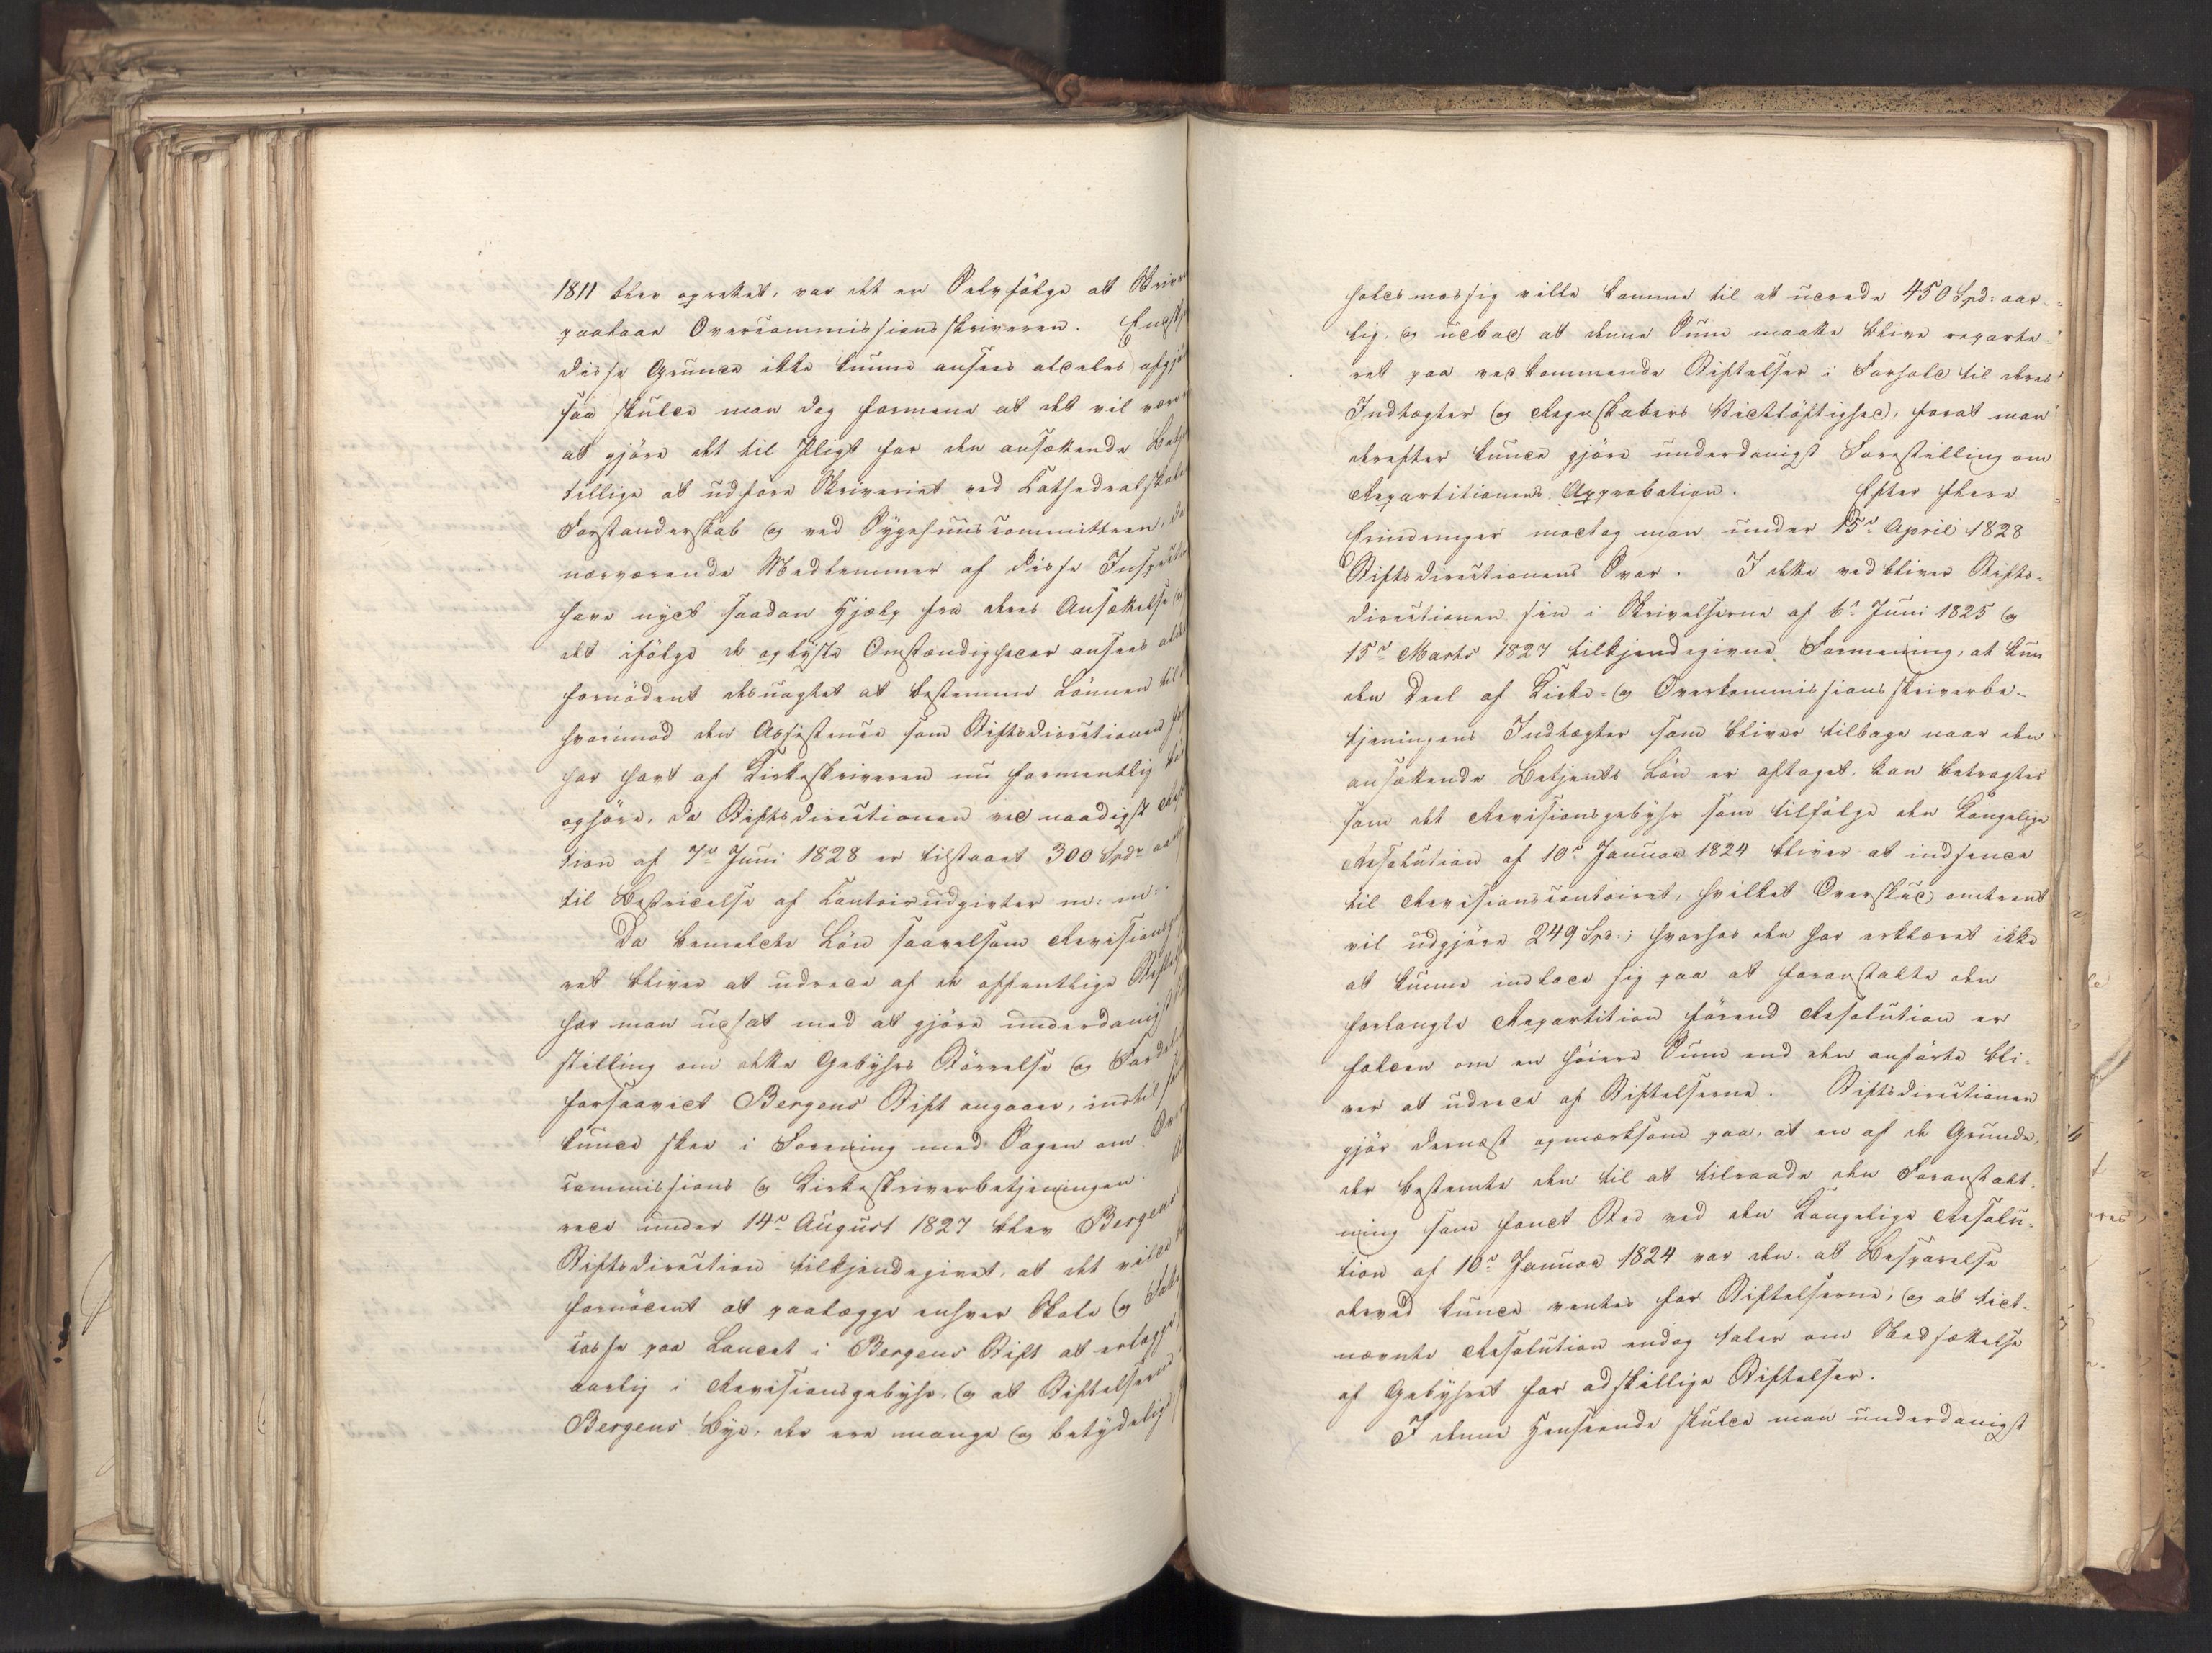 1811 blev oprettet, var det en Selvfölge at Skrive
paalaae Overcommissionsskriveren. Endskj
disse Grunde ikke kunne ansees aldeles afgjö
saa skulde man dog formene at det vil være
at gjöre det til Pligt for den ansættende Betje
tillige at udføre Skriveriet ved Cathedralskole
Forstanderskab og ved Sygehuuscommitteen, da
nærværende Medlemmer af disse Inspectio
have nydt saadan Hjælp fra deres Ansættelse og
det ifölge de oplyste Omstændigheder ansees alde
fornödent desuagtet at bestemme Lönnen til
hvorimod den Assistence som Stiftsdirectionen
har havt af Kirkeskriveren nu formentlig
ophöre, da Stiftsdirectionen ved naadigst
tion af 7de Juni 1828 er tilstaaet 300 Spdr
til Bestridelse af Contoirudgivter m: m:.
Da bemeldte Lön saavelsom Revisionsge
ret bliver at udrede af de offentlige Stiftel
har man udsat med at gjöre underdanigst
stilling om dette Gebyhrs Störrelse og Fordeli
forsaavidt Bergens Stift angaaer, indtil
kunde skee i Forening med Sagen om Over
commissions og Kirkeskriverbetjeningen.
rede under 14de August 1827 blev Bergens
Stiftsdirection tilkjendegivet, at det vilde
fornödent at paalægge enhver Skole og
casse paa Landet i Bergens Stift at erlægge
aarlig i Revisionsgebyhr, og at Stiftelserne
Bergens Bye, der ere mange og betydelige
holdsmæssig ville komme til at udrede 450 Spd: aar-
lig, og udbad at denne Sum maatte blive reparte-
ret paa vedkommende Stiftelser i Forhold til deres
Indtægter og Regnskabers Vidtlöftighed, forat man
derefter kunde gjöre underdanigst Forestilling om
Repartitionens Approbation. Efter flere
Erindringer modtog man under 15de April 1828
Stiftsdirectionens Svar. I dette vedbliver Stifts-
directionen sin i Skrivelserne af 6te Juni 1825 og
15de Marts 1827 tilkjendegivne Formening, at kun
den Deel af Kirke- og Overkommissionsskriverbe-
tjeningens Indtægter som bliver tilbage naar den
ansættende Betjents Lön er aftaget, kan betragtes
som det Revisionsgebyhr som tilfölge den Kongelige
Resolution af 10de Januar 1824 bliver at indsende
til Revisionscontoiret, hvilket Overskud omtrent
vil udgjöre 249 Spd:; hvorhos den har erklæret ikke
at kunne indlade sig paa at foranstalte den
forlangte Repartition förend Resolution er
falden om en höiere Sum end den anförte bli-
ver at udrede af Stiftelserne. Stiftsdirectionen
gjör dernæst opmærksom paa, at en af de Grunde,
der bestemte den til at tilraade den Foranstalt-
ning som fandt Sted ved den Kongelige Resolu-
tion af 10de Januar 1824 var den, at Besparelse
derved kunde ventes for Stiftelserne, og at sidst-
nævnte Resolution endog taler om Nedsættelse
af Gebyhret for adskillige Stiftelser.
I denne Henseende skulde man underdanigst